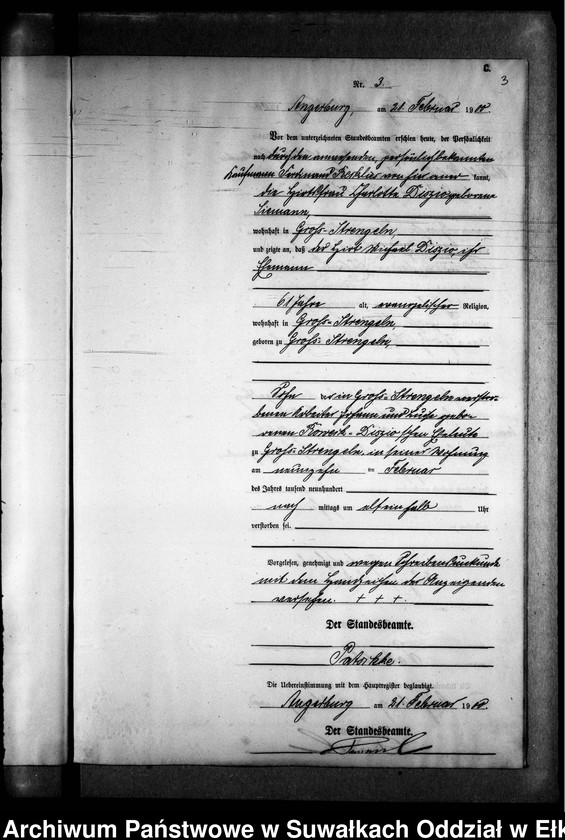 C.
3
Nr. 3.
Angerburg, am 21. Februar 1900.
Vor dem unterzeichneten Standesbeamten erschien heute, der Persönlichkeit
nach durch den anwesenden, persönlich bekannten
Kaufmann Ferdinand von hier kannt,
die Hirtfrau Charlotte Diszio, geborene
Siemann,
wohnhaft in Groß-Strengeln,
und zeigte an, daß der Hirt Michael Diszio, ihr
Ehemann
61 Jahre alt, evangelischer Religion,
wohnhaft in Groß-Strengeln,
geboren zu Groß-Strengeln,
Sohn der in Groß-Strengeln verstor-
benen Arbeiter Johann und Luise gebo-
renen Diszio'schen Eheleute
zu Groß-Strengeln, in seiner Wohnung
am neunzehn ten Februar
des Jahres tausend neunhundert
nach mittags um elf einhalb Uhr
verstorben sei.
Vorgelesen, genehmigt und wegen Schreibensunkunde
mit dem Handzeichen der Anzeigenden
versehen. + + +.
Der Standesbeamte.
Die Uebereinstimmung mit dem Hauptregister beglaubigt.
Angerburg am 21. Februar 1900.
Der Standesbeamte.
Archiwum Państwowe w Suwałkach Oddział w Ełk